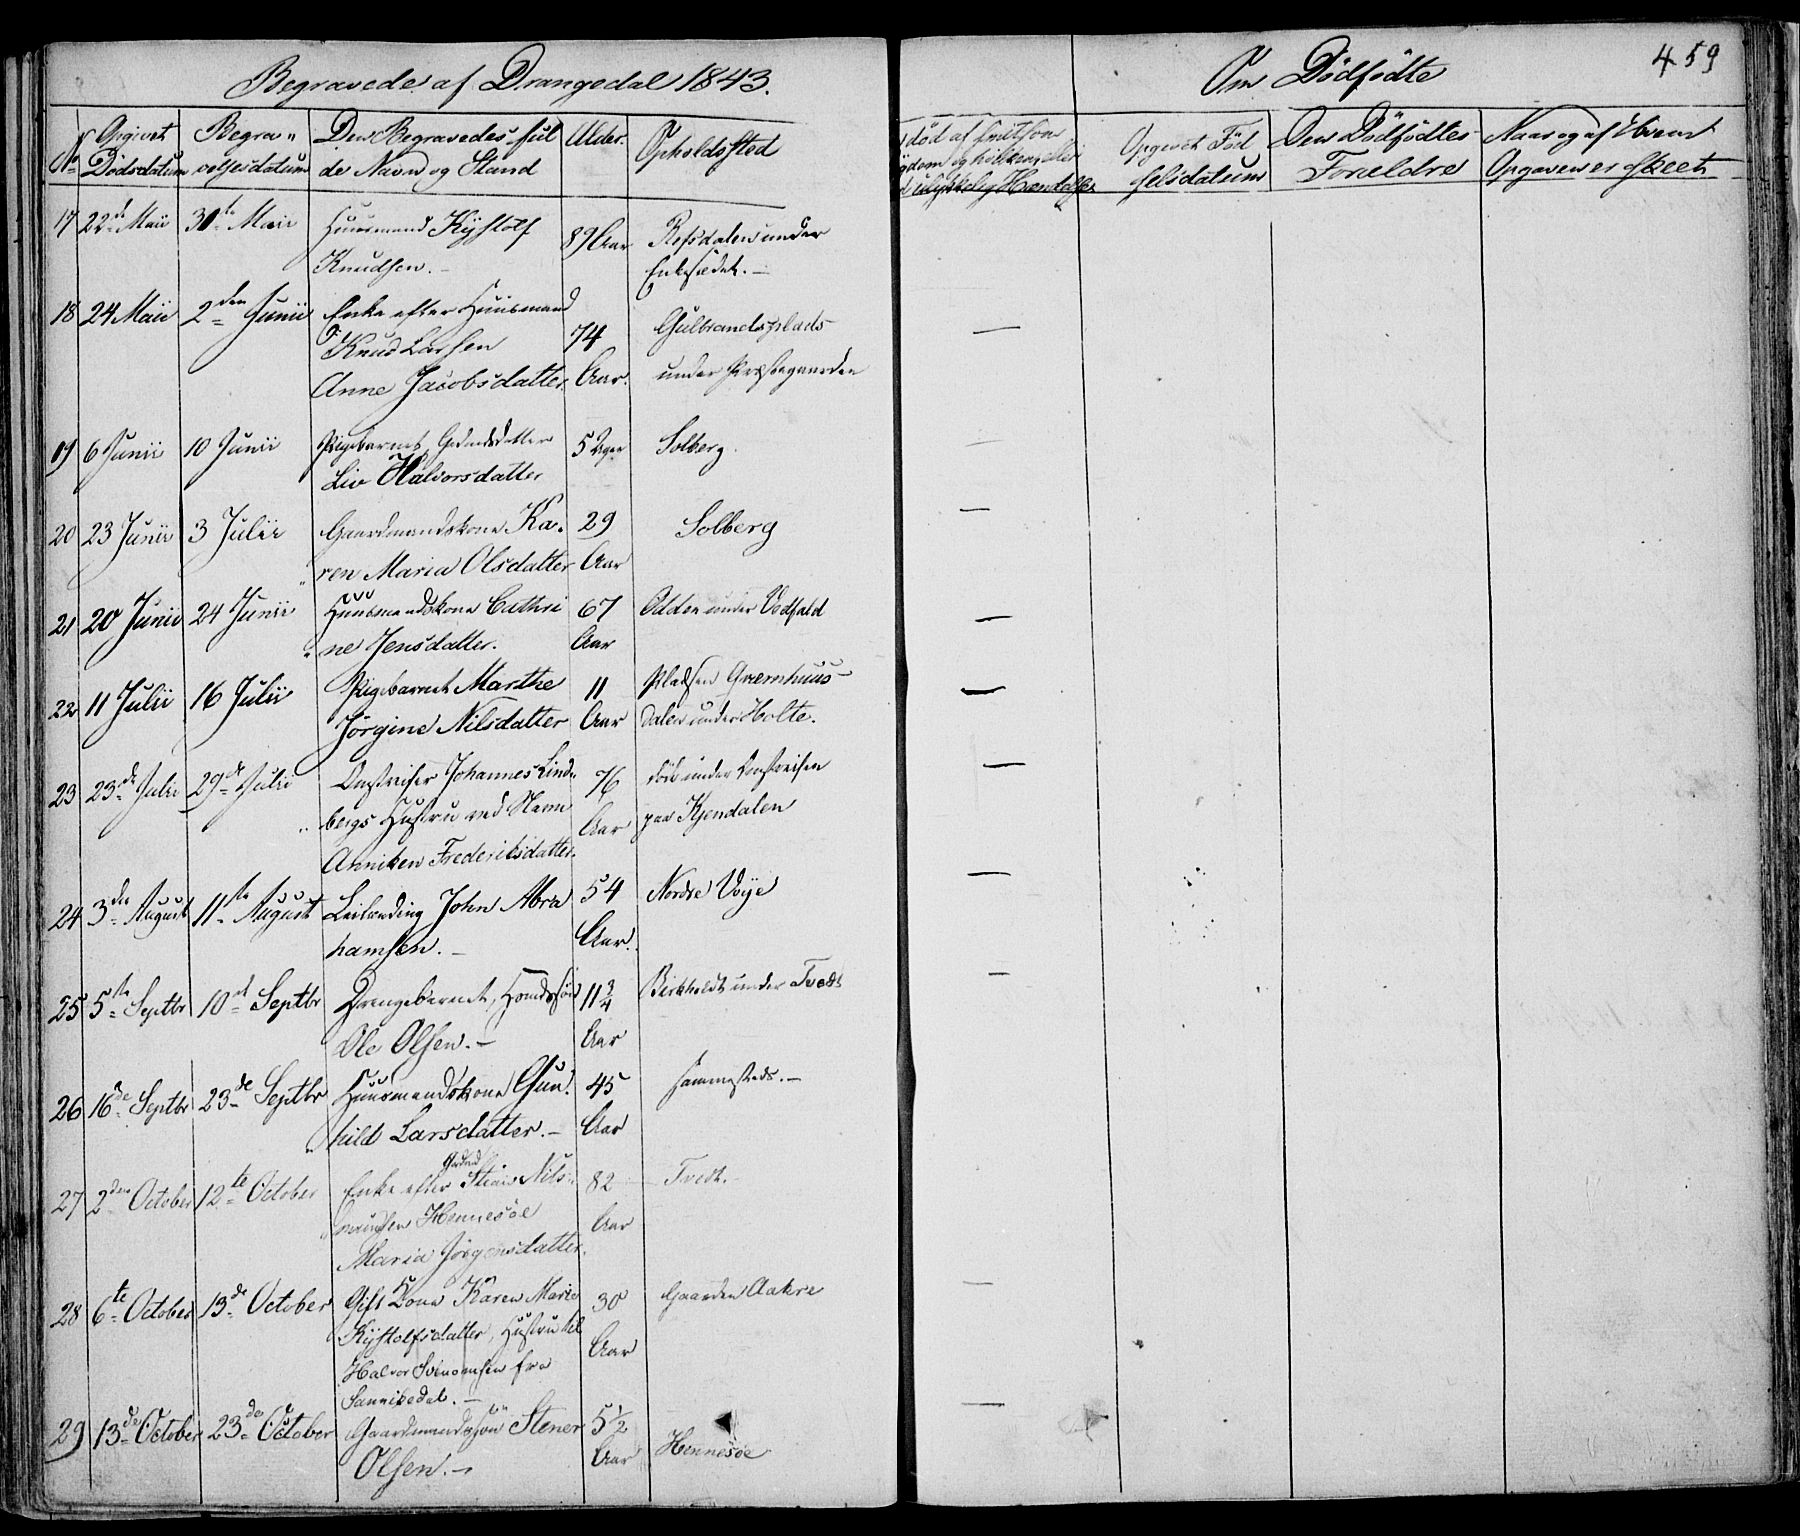 Begravede af Drangedal 1843.
Om Dödfödte
459
No
Opgivet Dödsdatum
Begravelsesdatum
Den Begravedes fulde Navn og Stand
Alder.
Opholdssted
Opgivet Födselsdatum
Den Dödfödtes Forældre
Naar og af Hvem Opgaven er skeet
17 22de Maii 30te Maii Huusmand Kjÿstolf 89 Aar Refsdalen under
Knudsen. Enkesædet.
18 24 Maii 2den Junii Enke efter Huusmand
Knud Larsen 74 Gulbrandsplads
Anne Jacobsdatter. Aar. under Præstegaarden
19 6 Junii 10 Junii Pigebarnet, Gaardmdsdatter 5 Uger Solberg.
Liv Halvorsdatter
20 23 Junii 3 Julii Gaardmandskone Ka- 29 Solberg
ren Maria Olsdatter Aar
21 20 Junii 24 Junii Huusmandskone Cathri 67 Odden under Vedfald
ne Jensdatter. Aar
22 11 Julii 16 Julii Pigebarnet Marthe 11 Pladsen Græmhuus-
Jörgine Nilsdatter Aar dalen under Holte.
23 23de Julii 29de Julii Omstreifer Johannes Lind- 76 död under Omstreifen
bergs Hustru ved Navn Aar paa Kjendalen
Anniken Frederiksdatter.
24 3die August 11te August Leilænding John Abra 54 Nordre Voje
hamsen. Aar.
25 5te Septbr 10de Septbr Drengebarnet, Huusmdssön 11 3/4 Birkholdt under Tvedt
Ole Olsen. Aar
26 16de Septbr 23de Septbr Huusmandskone Gun- 45 sammesteds.
hild Larsdatter. Aar
27 2den October 12te October Enke efter Steiner Nils- 82 Tvedt.
Hennesöe Aar
Maria Jörgensdatter.
28 6te October 13de October Gift Kone Karen Marie 30 Gaarden Aakre
Kjÿstolfsdatter, Hustru til Aar
Halvor Svenomsen fra
Sannikedal.
29 13de October 23de October Gaardmandssön Stener 5 1/2 Hennesöe
Olsen. Aar